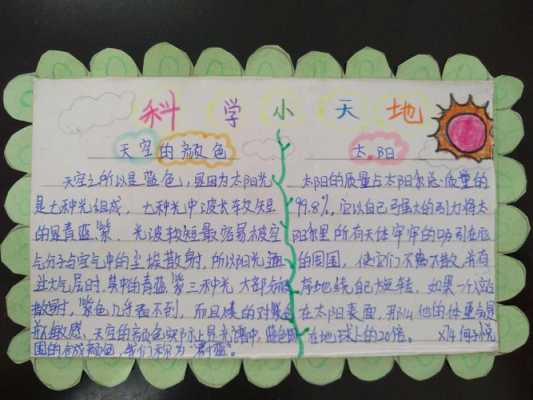 科学小天地
天空的颜色
天空之所以是蓝色,是因为太阳光
是七种光组成,七种光中波长较短
的是青蓝紫,光波较短最容易被空
气分子与空气中的尘埃散射,所以阳光通
过大气层时,其中的青蓝紫三种光大部分被
散射,紫色几乎看不到,而且
敏感,天空的颜色实际上是光谱中蓝色
的合成颜色,我们称为“蔚蓝”。
太阳
太阳的质量占太阳系总质量的
99.8%,它以自己强大的引力将太
阳系里所有天体牢牢的吸引在
的周围,使它们不离不散,井有
序地绕自己旋转,如果一个人站
在太阳表面,那么他的体重
在地球上的20倍。